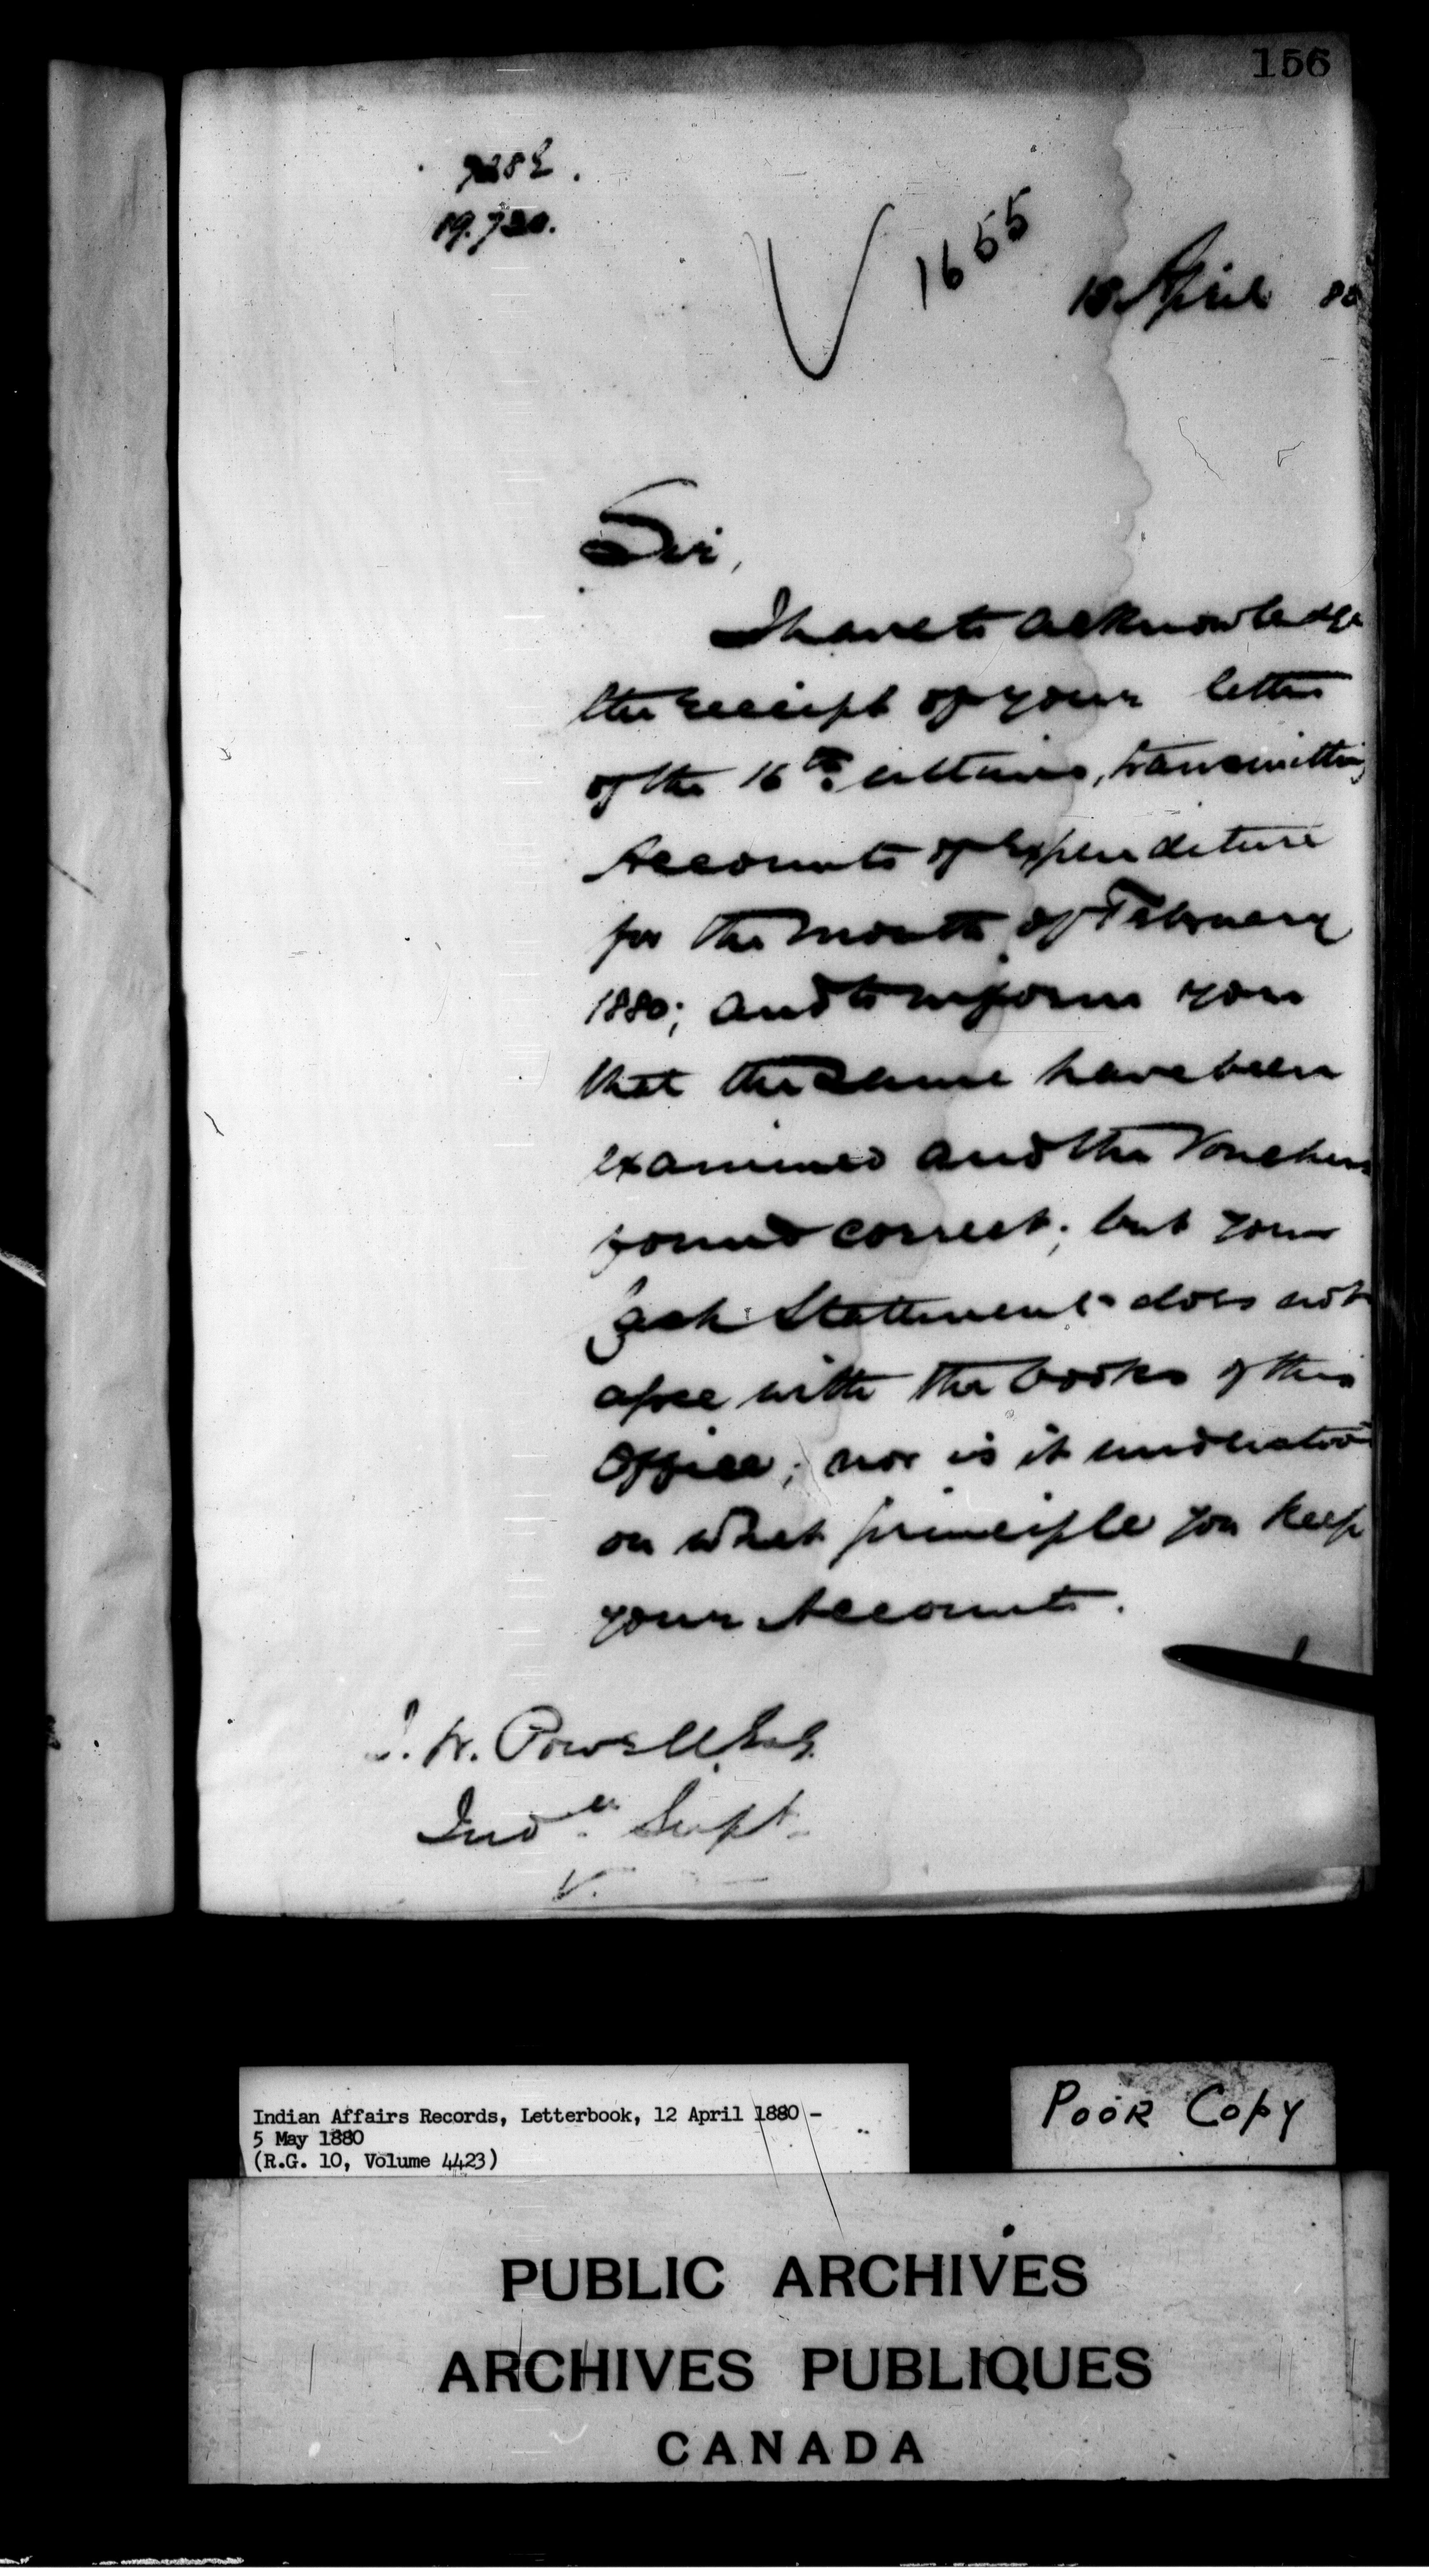 156
19.720.
1655
15 April 80
Sir,
I have to acknowledge
the receipt of your letter
of the 16th ultimo, transmitting
Accounts of Expenditure
for the month of February
1880; and to inform you
that the same have been
examined and the Vouchers
found correct; but your
Cash Statement does not
agree with the books of this
Office; nor is it understood
on what principle you keep
your Accounts.
I. W. Powell Esq.
Indn. Supt.
V.
Indian Affairs Records, Letterbook, 12 April 1880 -
5 May 1880
(R.G. 10, Volume 4423)
POOR COPY
PUBLIC ARCHIVES
ARCHIVES PUBLIQUES
CANADA